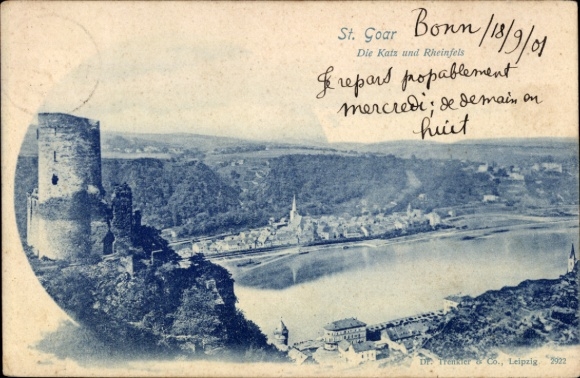 St. Goar
Die Katz und Rheinfels
Bonn/18/9/01
Je repars propablement
mercredi; de demain en
huit
Dr. Trenkler & Co., Leipzig. 2922